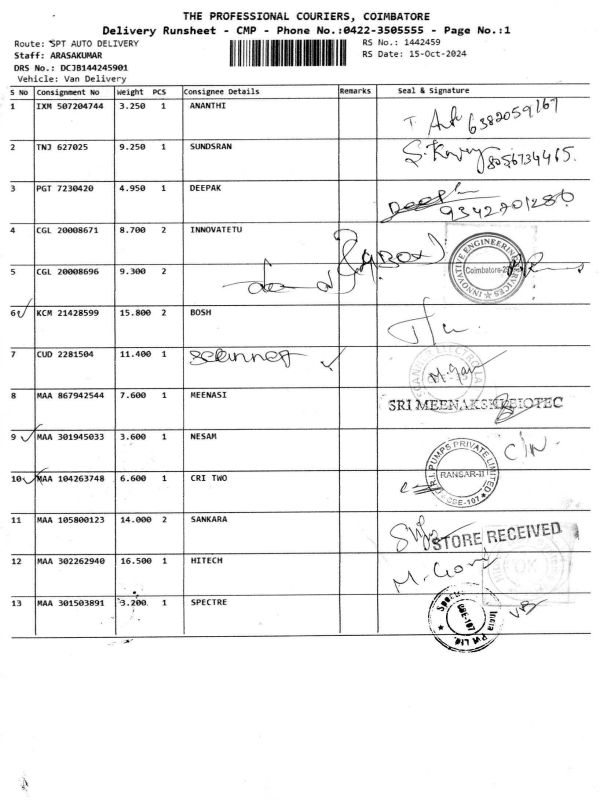 THE PROFESSIONAL COURIERS, COIMBATORE
Delivery Runsheet - CMP - Phone No.:0422-3505555 - Page No.:1
Route: SPT AUTO DELIVERY
RS No.: 1442459
Staff: ARASAKUMAR
RS Date: 15-Oct-2024
DRS No.: DCJB144245901
Vehicle: Van Delivery
S No Consignment No Weight PCS Consignee Details Remarks Seal & Signature
1 IXM 507204744 3.250 1 ANANTHI
6382059167
2 TNJ 627025 9.250 1 SUNDSRAN
8056734465.
3 PGT 7230420 4.950 1 DEEPAK
Deepak
9342701286
4 CGL 20008671 8.700 2 INNOVATETU
INNOVATIVE ENGINEERING SERVICES
5 CGL 20008696 9.300 2
6 KCM 21428599 15.800 2 BOSH
7 CUD 2281504 11.400 1 Scanner
8 MAA 867942544 7.600 1 MEENASI
SRI MEENAKSHI BIOTEC
9 MAA 301945033 3.600 1 NESAM
10 MAA 104263748 6.600 1 CRI TWO
PUMPS PRIVATE LIMITED
11 MAA 105800123 14.000 2 SANKARA
STORE RECEIVED
12 MAA 302262940 16.500 1 HITECH
OK
13 MAA 301503891 3.200 1 SPECTRE